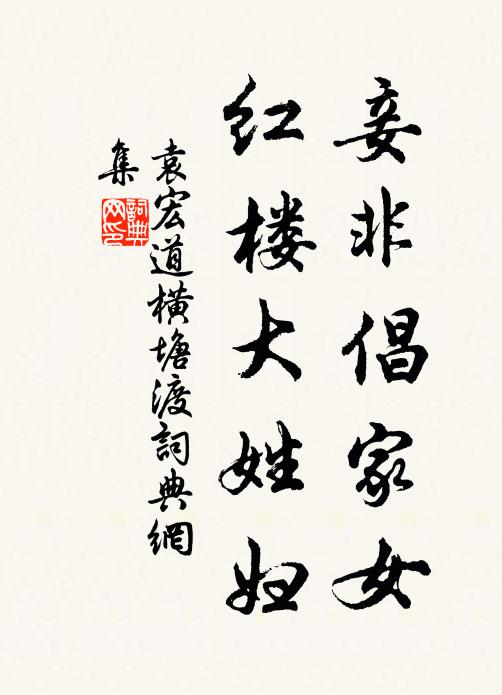 妾非倡家女
红楼大姓妇
袁宏道横塘渡詞典網
集
詞典网印